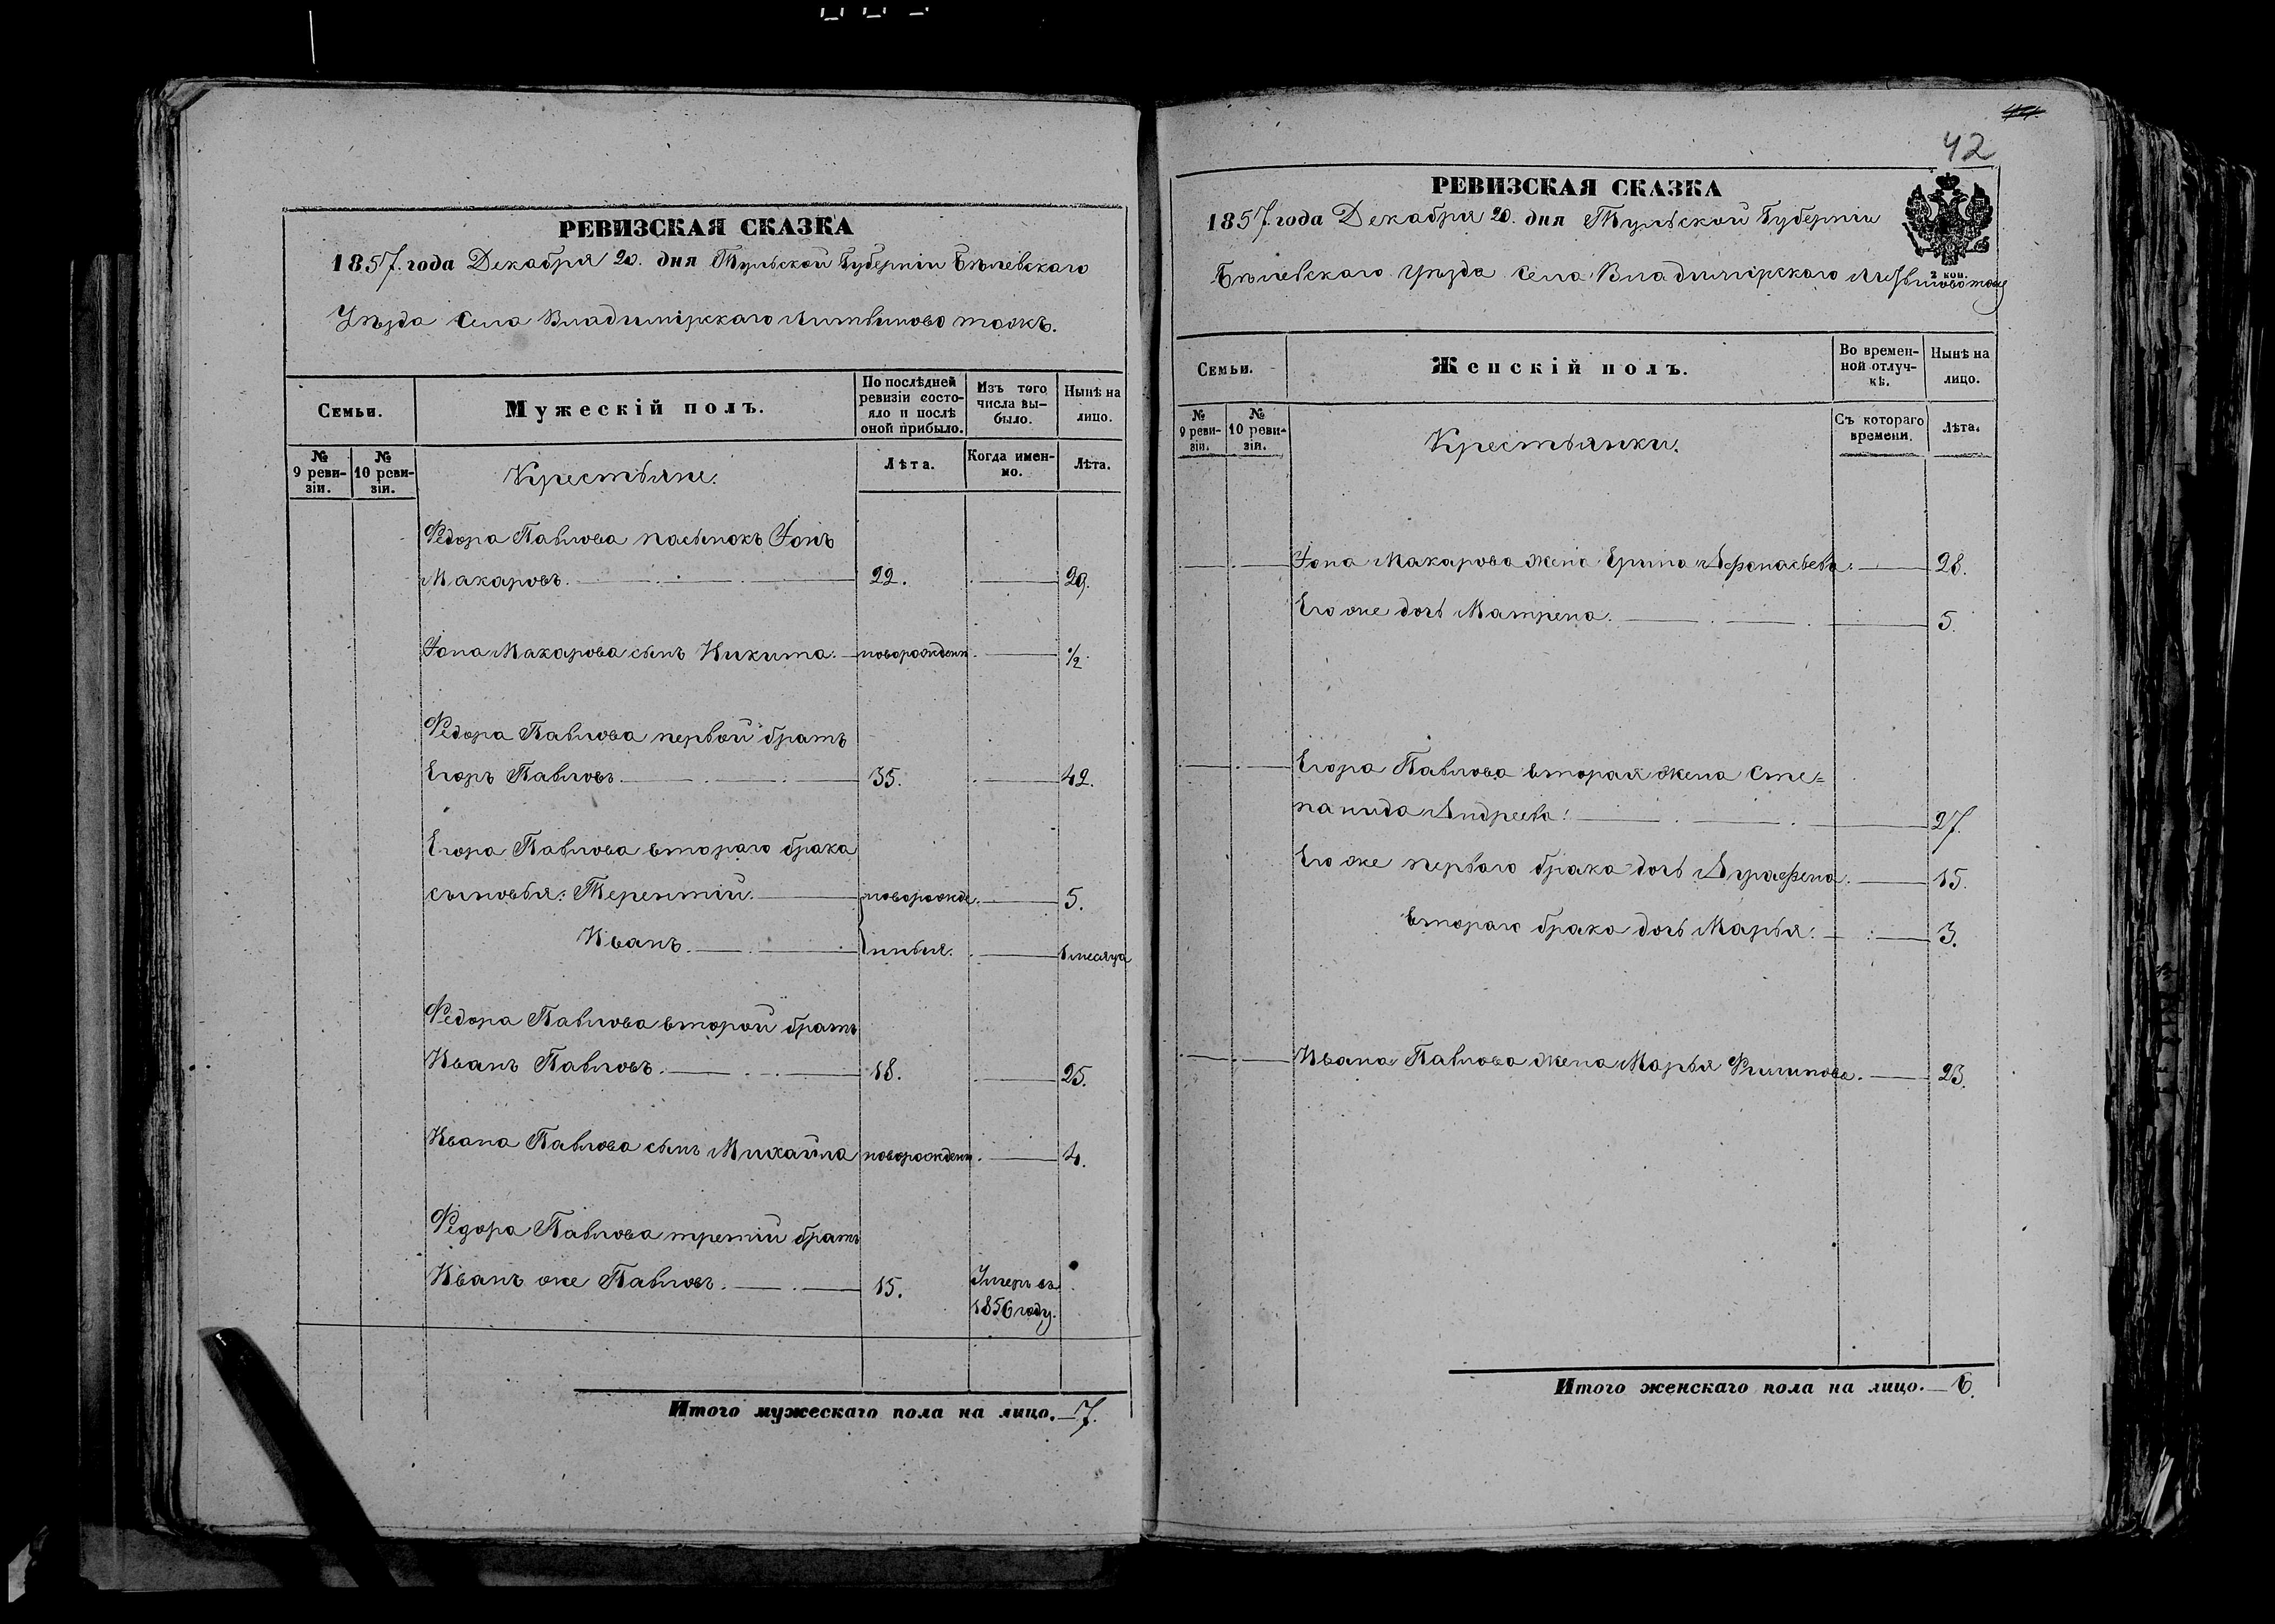 РЕВИЗСКАЯ СКАЗКА
1857. года Декабря 20. дня Тульской Губерніи Бѣлевскаго
Уѣзда Села Владимірскаго Литвиново тожъ.
Семьи.
Мужескій полъ.
По послѣдней ревизіи состояло и послѣ оной прибыло.
Изъ того числа выбыло.
Нынѣ на лицо.
№ 9 ревизіи.
№ 10 ревизіи.
Крестьяне.
Лѣта.
Когда именно.
Лѣта.
Федора Павлова пасынокъ Іонъ
Макаровъ. 22. 29.
Іона Макарова сынъ Никита. новорожден. ½
Федора Павлова первой братъ
Егоръ Павловъ. 35. 42.
Егора Павлова втораго брака
сыновья: Терентій. новорожде. 5.
Иванъ. нныя. 1 месяца
Федора Павлова второй братъ
Иванъ Павловъ. 18. 25.
Ивана Павлова сынъ Михайла новорожден. 4.
Федора Павлова третій братъ
Иванъ же Павловъ. 15. Умеръ въ
1856 году.
Итого мужескаго пола на лицо. 7.
42
РЕВИЗСКАЯ СКАЗКА
1857. года Декабря 20. дня Тульской Губерніи
2 коп.
Бѣлевскаго Уѣзда Села Владимірскаго Литвиново тожъ
Семьи.
Женскій полъ.
Во временной отлучкѣ.
Нынѣ на лицо.
№ 9 ревизіи.
№ 10 ревизіи.
Крестьянки.
Съ котораго времени.
Лѣта.
Іона Макарова жена Ерина Афонасьева. 28.
Его же дочь Матрена. 5.
Егора Павлова вторая жена Сте=
панида Андреева. 27.
Его же перваго брака дочь Аграфена. 15.
втораго брака дочь Марья. 3.
Ивана Павлова жена Марья Филипова. 23.
Итого женскаго пола на лицо. 6.